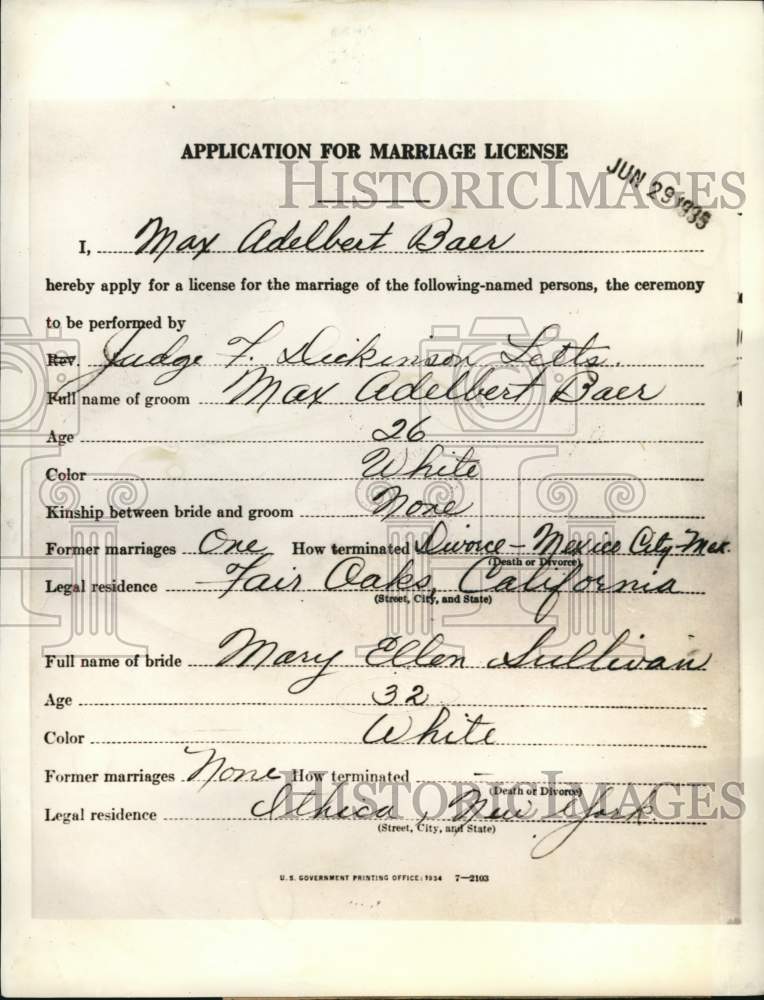 APPLICATION FOR MARRIAGE LICENSE
JUN 29 1935
HISTORICIMAGES
I, Max Adelbert Baer
hereby apply for a license for the marriage of the following-named persons, the ceremony
to be performed by
Rev. Judge F. Dickinson Letts.
Full name of groom Max Adelbert Baer
Age 26
Color White
Kinship between bride and groom None
Former marriages One How terminated Divorce - Mexico City-Mex.
(Death or Divorce)
Legal residence Fair Oaks, California
(Street, City, and State)
Full name of bride Mary Ellen Sullivan
Age 32
Color White
Former marriages None How terminated -
(Death or Divorce)
HISTORICIMAGES
Legal residence Ithica, New York.
(Street, City, and State)
U. S. GOVERNMENT PRINTING OFFICE: 1934 7-2103